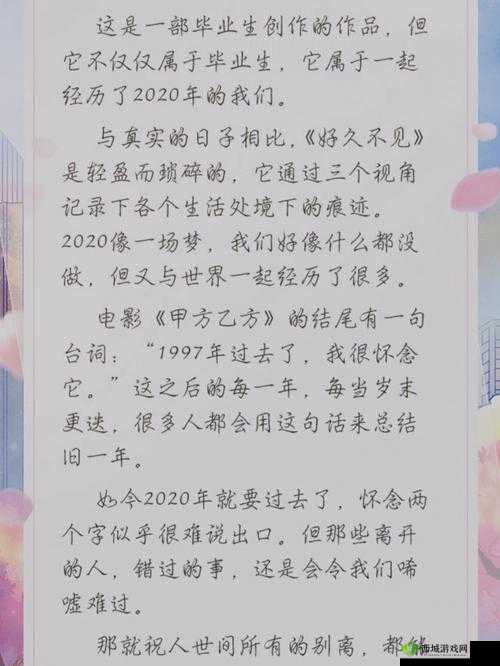 这是一部毕业生创作的作品，但
它不仅仅属于毕业生，它属于一起
经历了2020年的我们。
与真实的日子相比，《好久不见》
是轻盈而琐碎的，它通过三个视角
记录下各个生活处境下的痕迹。
2020像一场梦，我们好像什么都没
做，但又与世界一起经历了很多。
电影《甲方乙方》的结尾有一句
台词：“1997年过去了，我很怀念
它。”这之后的每一年，每当岁末
更迭，很多人都会用这句话来总结
旧一年。
如今2020年就要过去了，怀念两
个字似乎很难说出口。但那些离开
的人，错过的事，还是会令我们唏
嘘难过。
那就祝人世间所有的别离，都能
西城游戏网